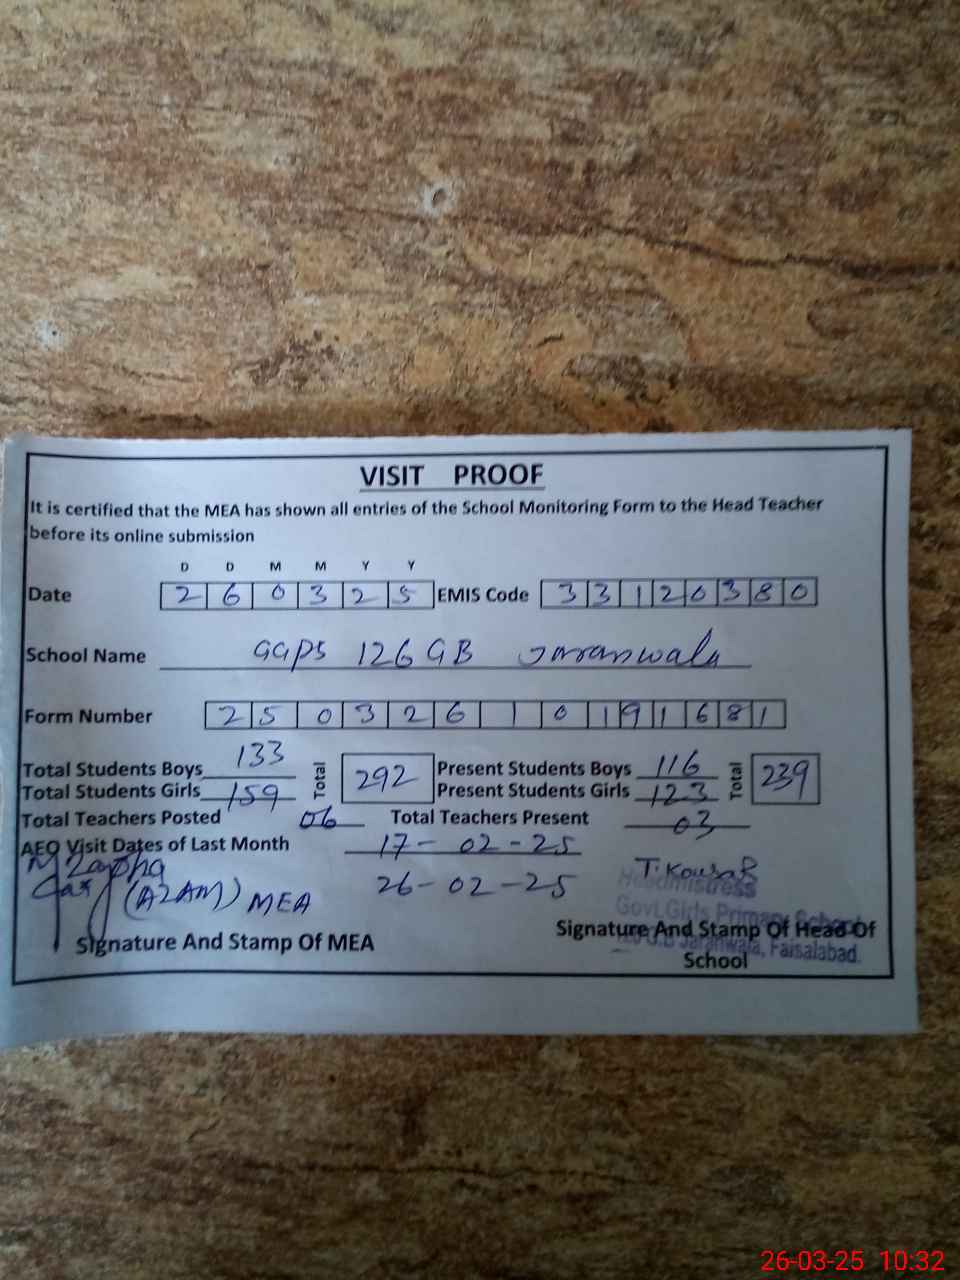 VISIT PROOF
It is certified that the MEA has shown all entries of the School Monitoring Form to the Head Teacher
before its online submission
D D M M Y Y
Date 2 6 0 3 2 5 EMIS Code 3 3 1 2 0 3 8 0
School Name GGPS 126 GB Jaranwala
Form Number 2 5 0 3 2 6 1 0 1 9 1 6 8 1
Total Students Boys 133 Total 292 Present Students Boys 116 Total 239
Total Students Girls 159 Present Students Girls 123
Total Teachers Posted 06 Total Teachers Present 03
AEO Visit Dates of Last Month 17-02-25
26-02-25
(AZAM) MEA
T. Kousar
Headmistress
Govt.Girls Primary School
G.B Jaranwala, Faisalabad.
Signature And Stamp Of MEA
Signature And Stamp Of Head Of
School
26-03-25 10:32